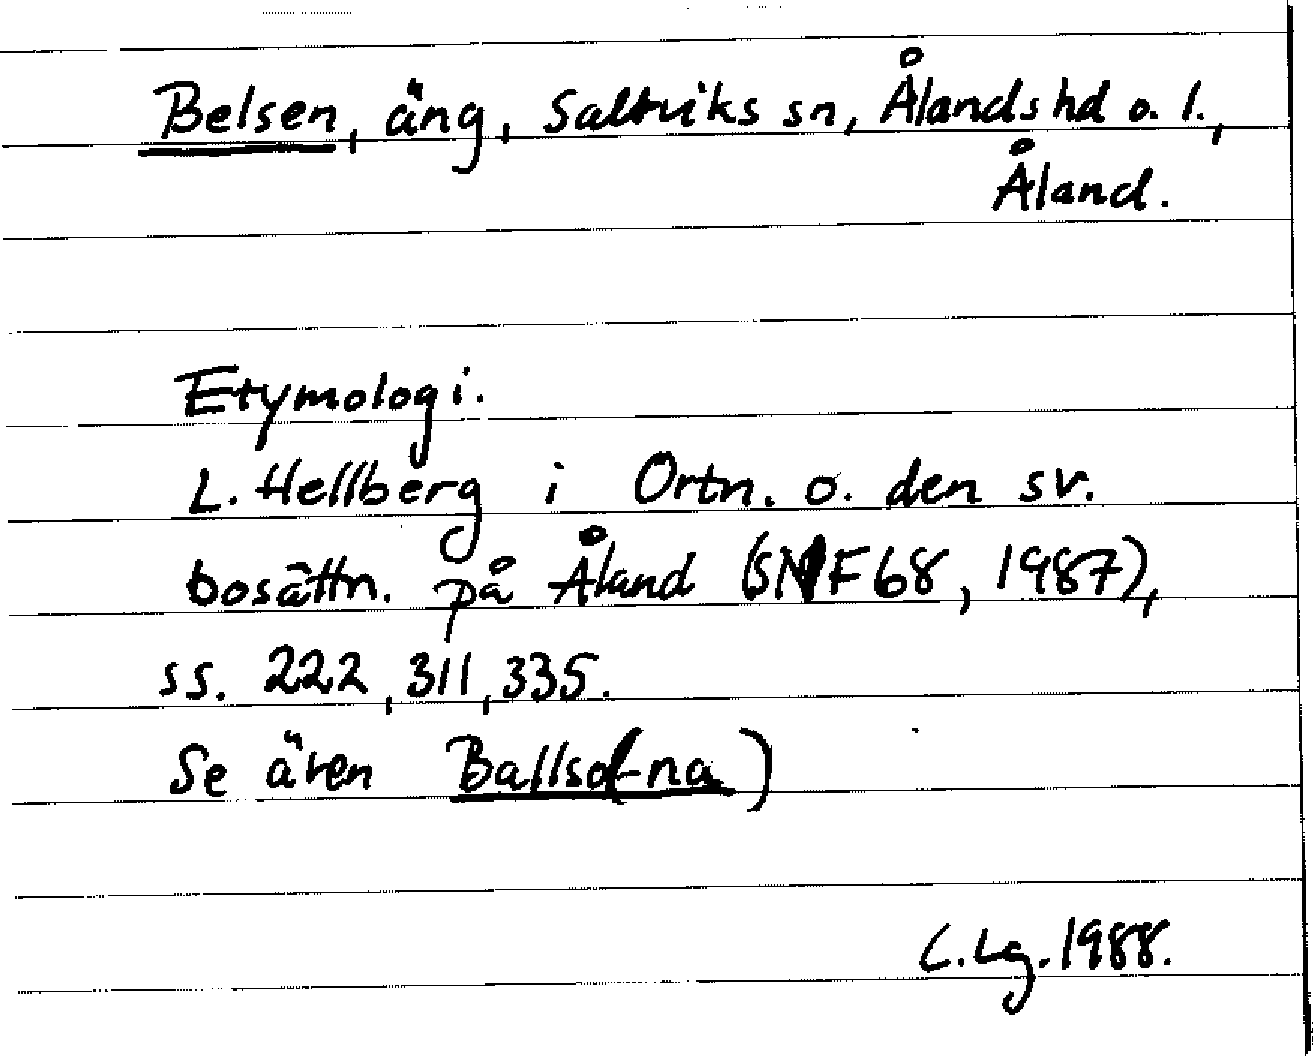 Belsen, äng, Saltviks sn, Ålands hd o. l.,
Åland.
Etymologi.
L. Hellberg i Ortn. o. den sv.
bosättn. på Åland (SNF 68, 1987),
ss. 222, 311, 335.
Se även Ballso(-na)
C. Lg. 1988.